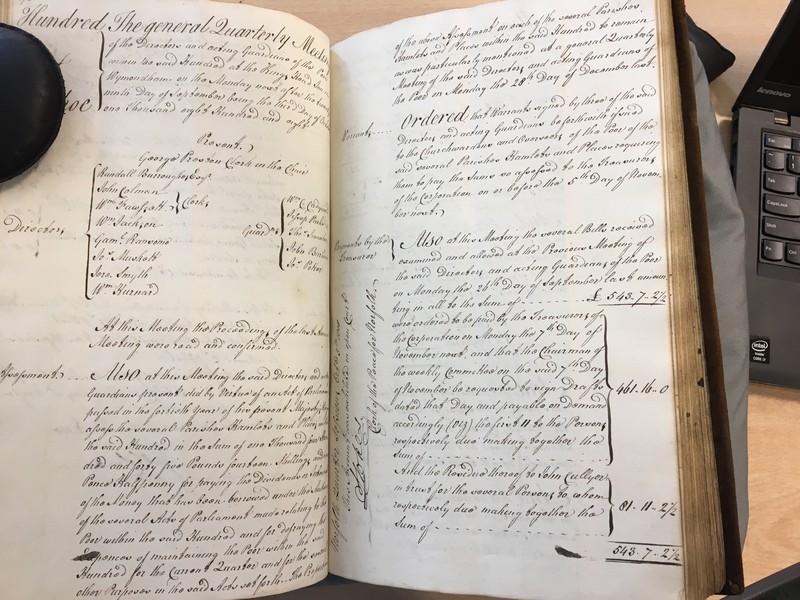 Hundred
The general Quarterly Meeting
of the Directors and acting Guardians of the Poor
within the said Hundred at the Kings Head Inn
Wymondham on the Monday next after the twenty
ninth Day of September being the third Day of October
one Thousand eight Hundred and eight
Present
George Preston Clerk in the Chair
Directors
Randall Burroughes Esqr.
John Colman
Wm Fawssett
Clerks
Wm Jackson
Gaml. Ransome
Jas. Muskett
Jere. Smyth
Wm Hurnard
Guardns
John
At this Meeting the Proceedings of the last
Meeting were read and confirmed
Assessment
Also at this Meeting the said Directors and acting
Guardians present did by Virtue of an Act of Parliament
passed in the fortieth Year of his present Majesty
assess the several Parishes Hamlets and Places within
the said Hundred in the Sum of one Thousand four Hun
dred and forty five Pounds fourteen Shillings and
Pence Halfpenny for paying the Dividends or Interest
of the Money that has been borrowed under the Authority
of the several Acts of Parliament made relating to the
Poor within the said Hundred and for defraying the
Expences of maintaining the Poor within the said
Hundred for the current Quarter and for the several
other Purposes in the said Acts set forth The
of the above Assessment on each of the several Parishes
Hamlets and Places within the said Hundred to remain
as was particularly mentioned at a general Quarterly
Meeting of the said Directors and acting Guardians of
the Poor on Monday the 28th Day of December last
Warrants
Ordered that Warrants signed by three of the said
Directors and acting Guardians be forthwith issued
to the Churchwardens and Overseers of the Poor of the
said several Parishes Hamlets and Places requiring
them to pay the Sums so assessed to the Treasurers
of the Corporation on or before the 5th Day of Novem
ber next
Payments by the
Treasurer
Also at this Meeting the several Bills received
examined and allowed at the Previous Meeting of
the said Directors and acting Guardians of the Poor
on Monday the 26th Day of September last amoun
ting in all to the Sum of £ 543-7-2½
were ordered to be paid by the Treasurers of
the Corporation on Monday the 7th Day of
November next, and that the Chairman of
the weekly Committee on the said 7th Day
of November be requested to sign Drafts
dated that Day and payable on Demand
accordingly (viz) the first 11 to the Persons
respectively due making together the
Sum of
461-16-0
And the Residue thereof to John Cullyer
in trust for the several Persons to whom
respectively due making together the
Sum of
81-11-2½
543-7-2½
Clerk of the Peace for Norfolk
lenovo
Tab
CapsLock
Shift
Fn
Ctrl
intel
inside
CORE i7